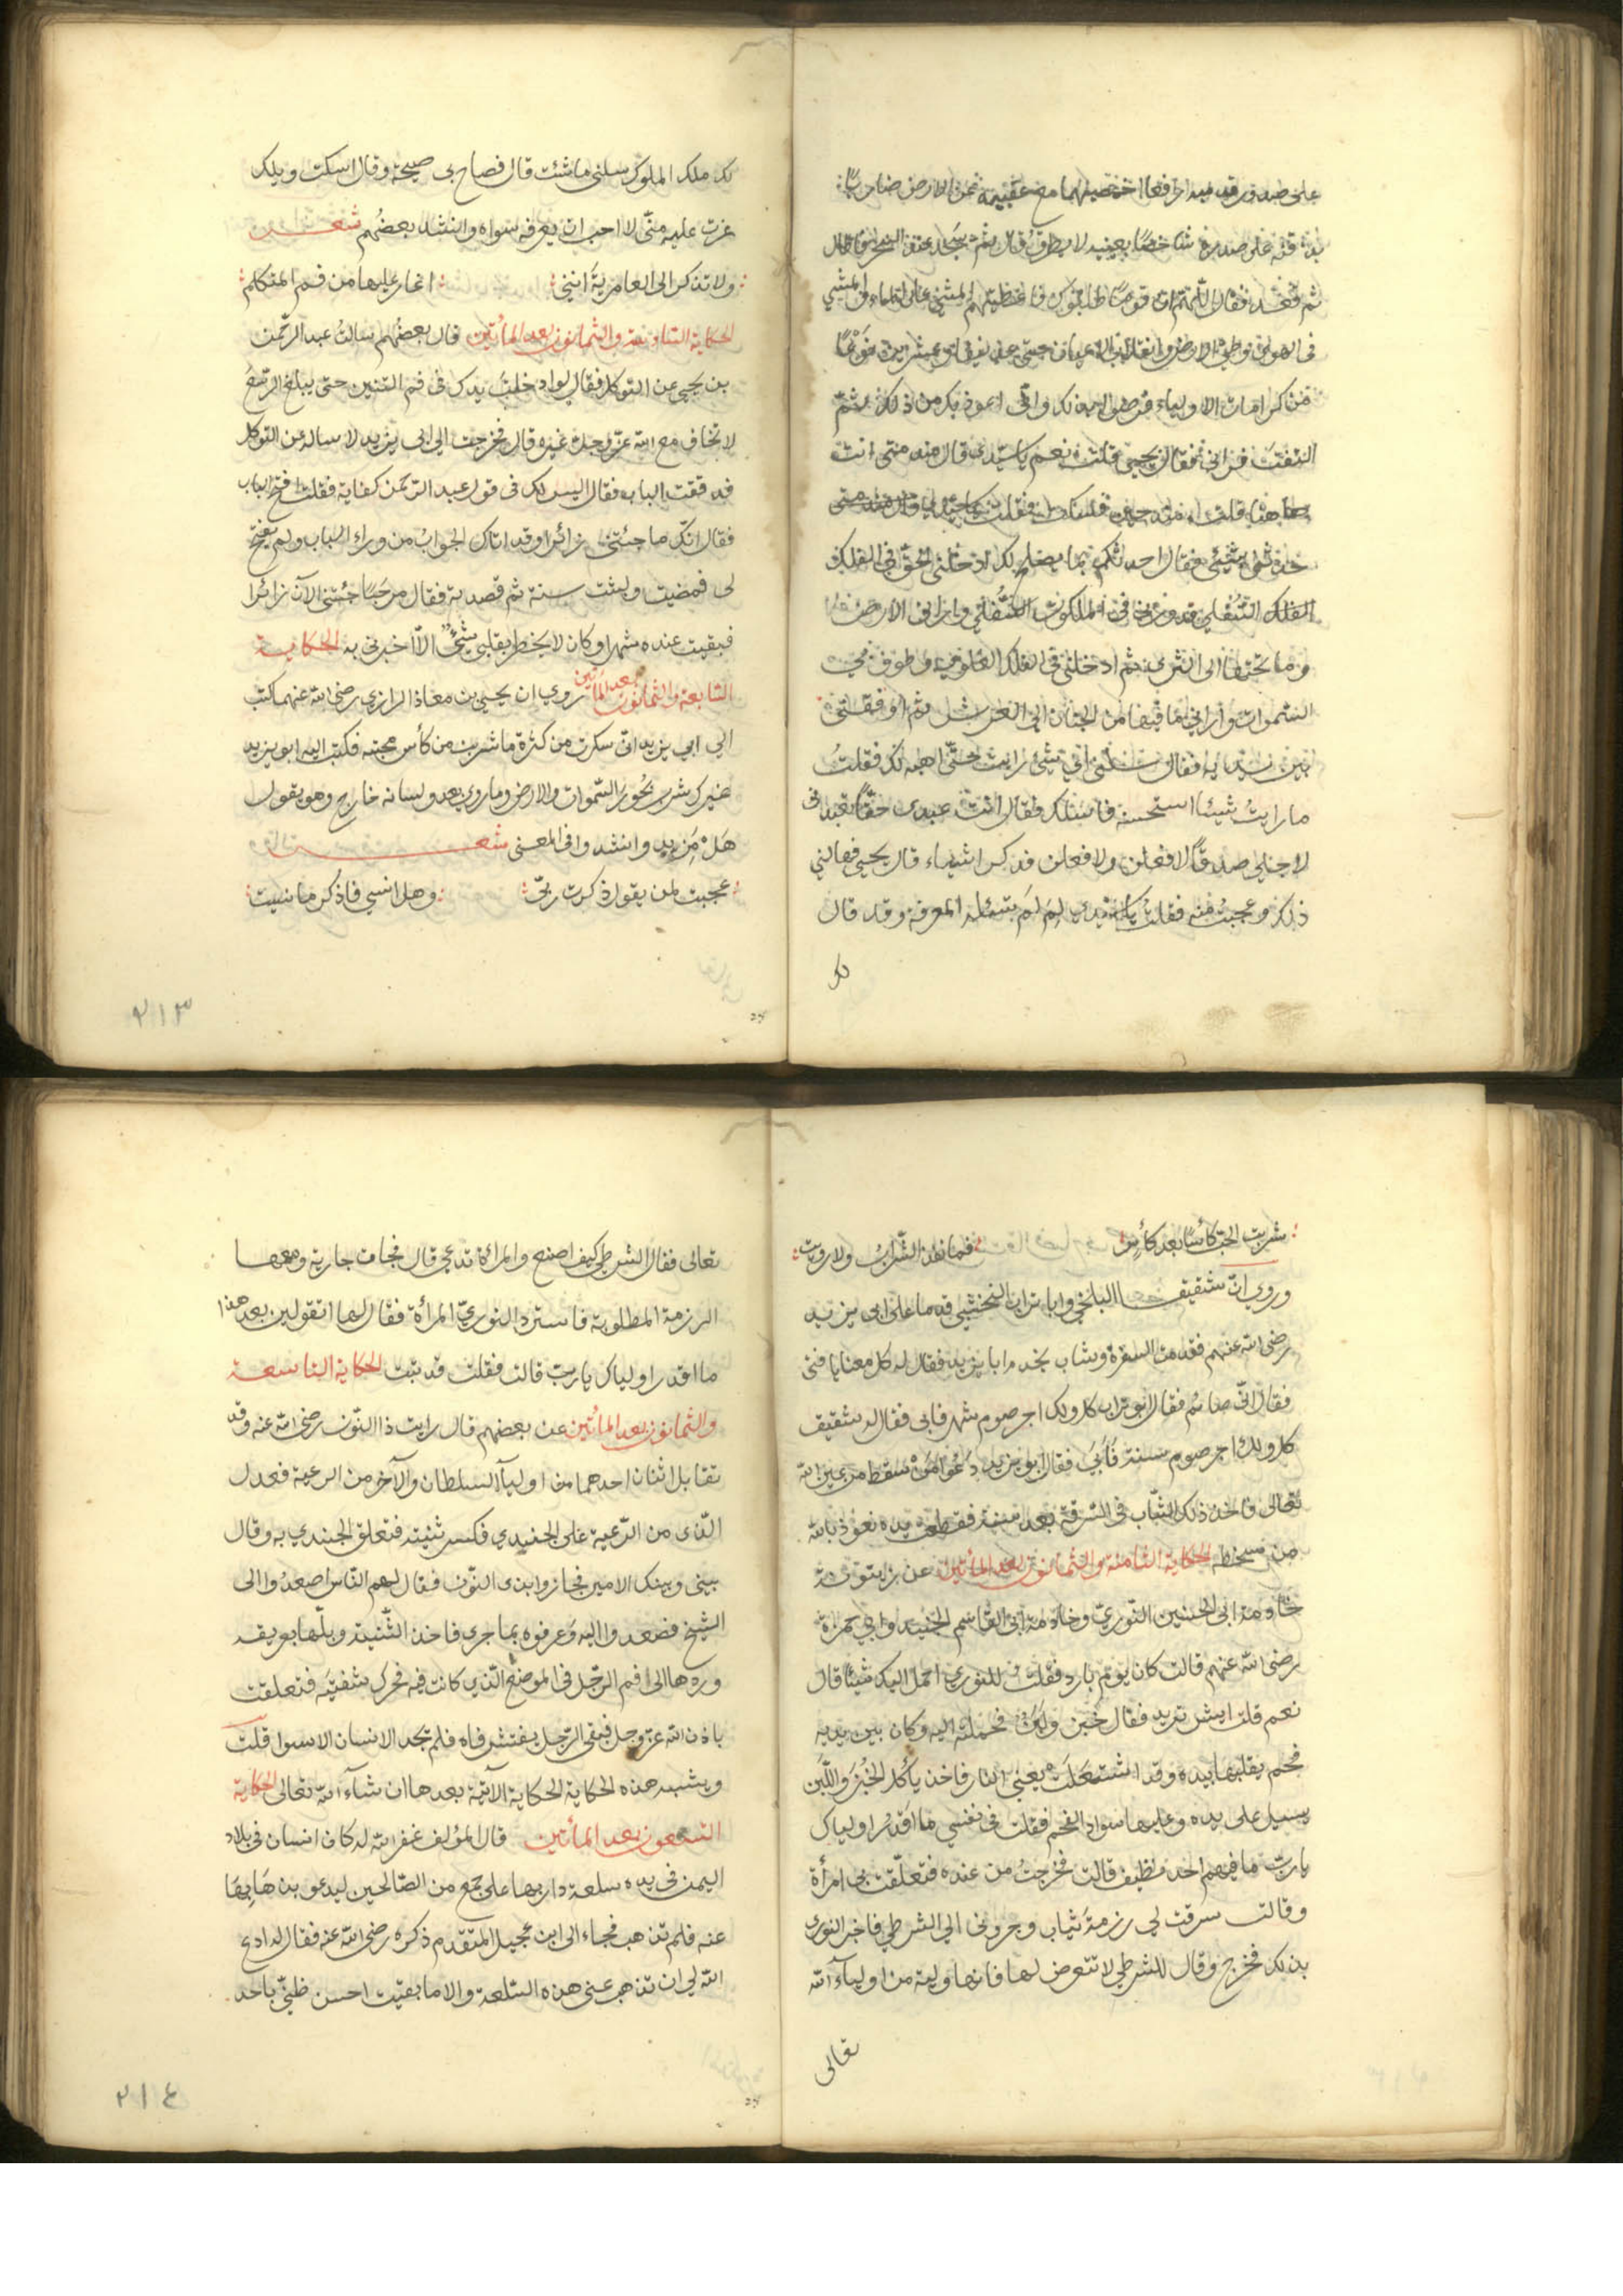 على صدور قدميه رافعا اخمصيهما مع عقبيه عن الارض ضاربا
بذقنه على صدره شاخصا بعينيه لا يطرف قال ثم سجد عند السحر فاطال
ثم قعد فقال اللهم ان قوما طلبوك فاعطيتهم المشي على الماء والمشي
في الهوى فرضوا
من كرامات الاولياء فرضوا بذلك واني اعوذ بك من ذلك ثم
التفت فراني فقال يحيى قلت نعم يا سيدي قال منذ متى انت
هاهنا قلت منذ حين فسكت فقلت يا سيدي
حدثني بشيئ فقال احدثك بما يصلح لك ادخلني الحق في الفلك
الفلك السفلي فدورني في الملكوت السفلي واراني الارض
وما تحتها الى الثرى ثم ادخلني في الفلك العلوي وطوف بي
السموات واراني ما فيها من الجنان الى العرش ثم اوقفني
بين يديه فقال سلني اي شيئ رايت حتى اهبه لك فقلت
ما رايت شيئا استحسنه فاسئلك فقال انت عبدي حقا تعبدني
لاجلي صدقا لافعلن ولافعلن فذكر اشياء قال يحيى فهالني
ذلك وعجبت منه فقلت يا سيدي لم لم تسئله المعرفة وقد قال
لك
لك ملك الملوك سلني ما شئت قال فصاح بي صيحة وقال اسكت ويلك
غرت عليه مني لا احب ان يعرفه سواه وانشد بعضهم شعر
ولا تذكر الى العامرية انني اغار عليها من فم المتكلم
الحكاية السادسة والثمانون بعد المأتين قال بعضهم سالت عبد الرحمن
بن يحيى عن التوكل فقال لو ادخلت يدك في فم التنين حتى يبلغ الرسغ
لا تخاف مع الله عز وجل غيره قال فخرجت الى ابي يزيد لاساله عن التوكل
فدققت الباب فقال اليس لك في قول عبد الرحمن كفاية فقلت افتح الباب
فقال انك ما جئتني زائرا وقد اتاك الجواب من وراء الباب ولم يفتح
لي فمضيت ولبثت سنة ثم قصدته فقال مرحبا جئتني الآن زائرا
فبقيت عنده شهرا وكان لا يخطر بقلبي شيئ الا اخبرني به الحكاية
السابعة والثمانون بعد المأتين روي ان يحيى بن معاذ الرازي رضي الله عنهما كتب
الى ابي يزيد اني سكرت من كثرة ما شربت من كأس محبته فكتب اليه ابو يزيد
غيرك شرب بحور السموات والارض وما روي بعد ولسانه خارج وهو يقول
هل من مزيد وانشدوا في المعنى شعر
عجبت لمن يقول ذكرت ربي وهل انسى فاذكر ما نسيت
٢١٣
شربت الحب كأسا بعد كأس فما نفذ الشراب ولا رويت
وروي ان شقيق البلخي وابا تراب النخشبي قدما على ابي يزيد
رضي الله عنهم فقدمت السفرة وشاب يخدم ابا يزيد فقال له كل معنا يا فتى
فقال اني صائم فقال ابو تراب كل ولك اجر صوم شهر فابى فقال له شقيق
كل ولك اجر صوم سنة فأبى فقال ابو يزيد دعوا من سقط من عين الله
تعالى فاخذ ذلك الشاب في السرقة بعد سنة فقطعت يده نعوذ بالله
من سخطه الحكاية الثامنة والثمانون بعد المأتين عن زيتونة
خادمة ابي الحسين النوري وخادمة ابي القاسم الجنيد وابي حمزة
رضي الله عنهم قالت كان يوم بارد فقلت للنوري احمل اليك شيئا قال
نعم قلت ايش تريد فقال خبز ولبن فحملته اليه وكان بين يديه
فحم يقلبها بيده وقد اشتعلت يعني النار فاخذ يأكل الخبز واللبن
يسيل على يده وعليها سواد الفحم فقلت في نفسي ما اقذر اولياك
يا رب ما فيهم احد نظيف قالت فخرجت من عنده فتعلقت بي امرأة
وقالت سرقت لي رزمة ثياب وجروني الى الشرطي فاخبر النوري
بذلك فخرج وقال للشرطي لا تتعرض لها فانها ولية من اولياء الله
تعالى
تعالى فقال الشرطي كيف اصنع والمرأة تدعي قال فجاءت جارية ومعها
الرزمة المطلوبة فاسترد النوري المرأة فقال لها اتقولين بعد هذا
ما اقذر اولياك يا رب قالت فقلت قد تبت الحكاية التاسعة
والثمانون بعد المأتين عن بعضهم قال رايت ذا النون رضي الله عنه وقد
تقابل اثنان احدهما من اولياء السلطان والآخر من الرعية فعدل
الذي من الرعية على الجندي فكسر ثنيته فتعلق الجندي به وقال
بيني وبينك الامير فجازوا بذي النون فقال لهم الناس اصعدوا الى
الشيخ فصعدوا اليه وعرفوه بما جرى فاخذ الثنية وبلها بريقه
وردها الى فم الرجل في الموضع الذي كانت فيه فحرك شفتيه فتعلقت
باذن الله عز وجل فبقي الرجل يفتش فاه فلم يجد الاسنان الا سوا قلت
ويشبه هذه الحكاية الحكاية الآتية بعدها ان شاء الله تعالى الحكاية
التسعون بعد المأتين قال المؤلف غفر الله له كان انسان في بلاد
اليمن في يده سلعة دار بها على جمع من الصالحين ليدعو بذهابها
عنه فلم تذهب فجاء الى ابن عجيل المتقدم ذكره رضي الله عنه فقال له ادع
الله لي ان تذهب عني هذه السلعة والا ما بقيت احسن ظني باحد
٢١٤